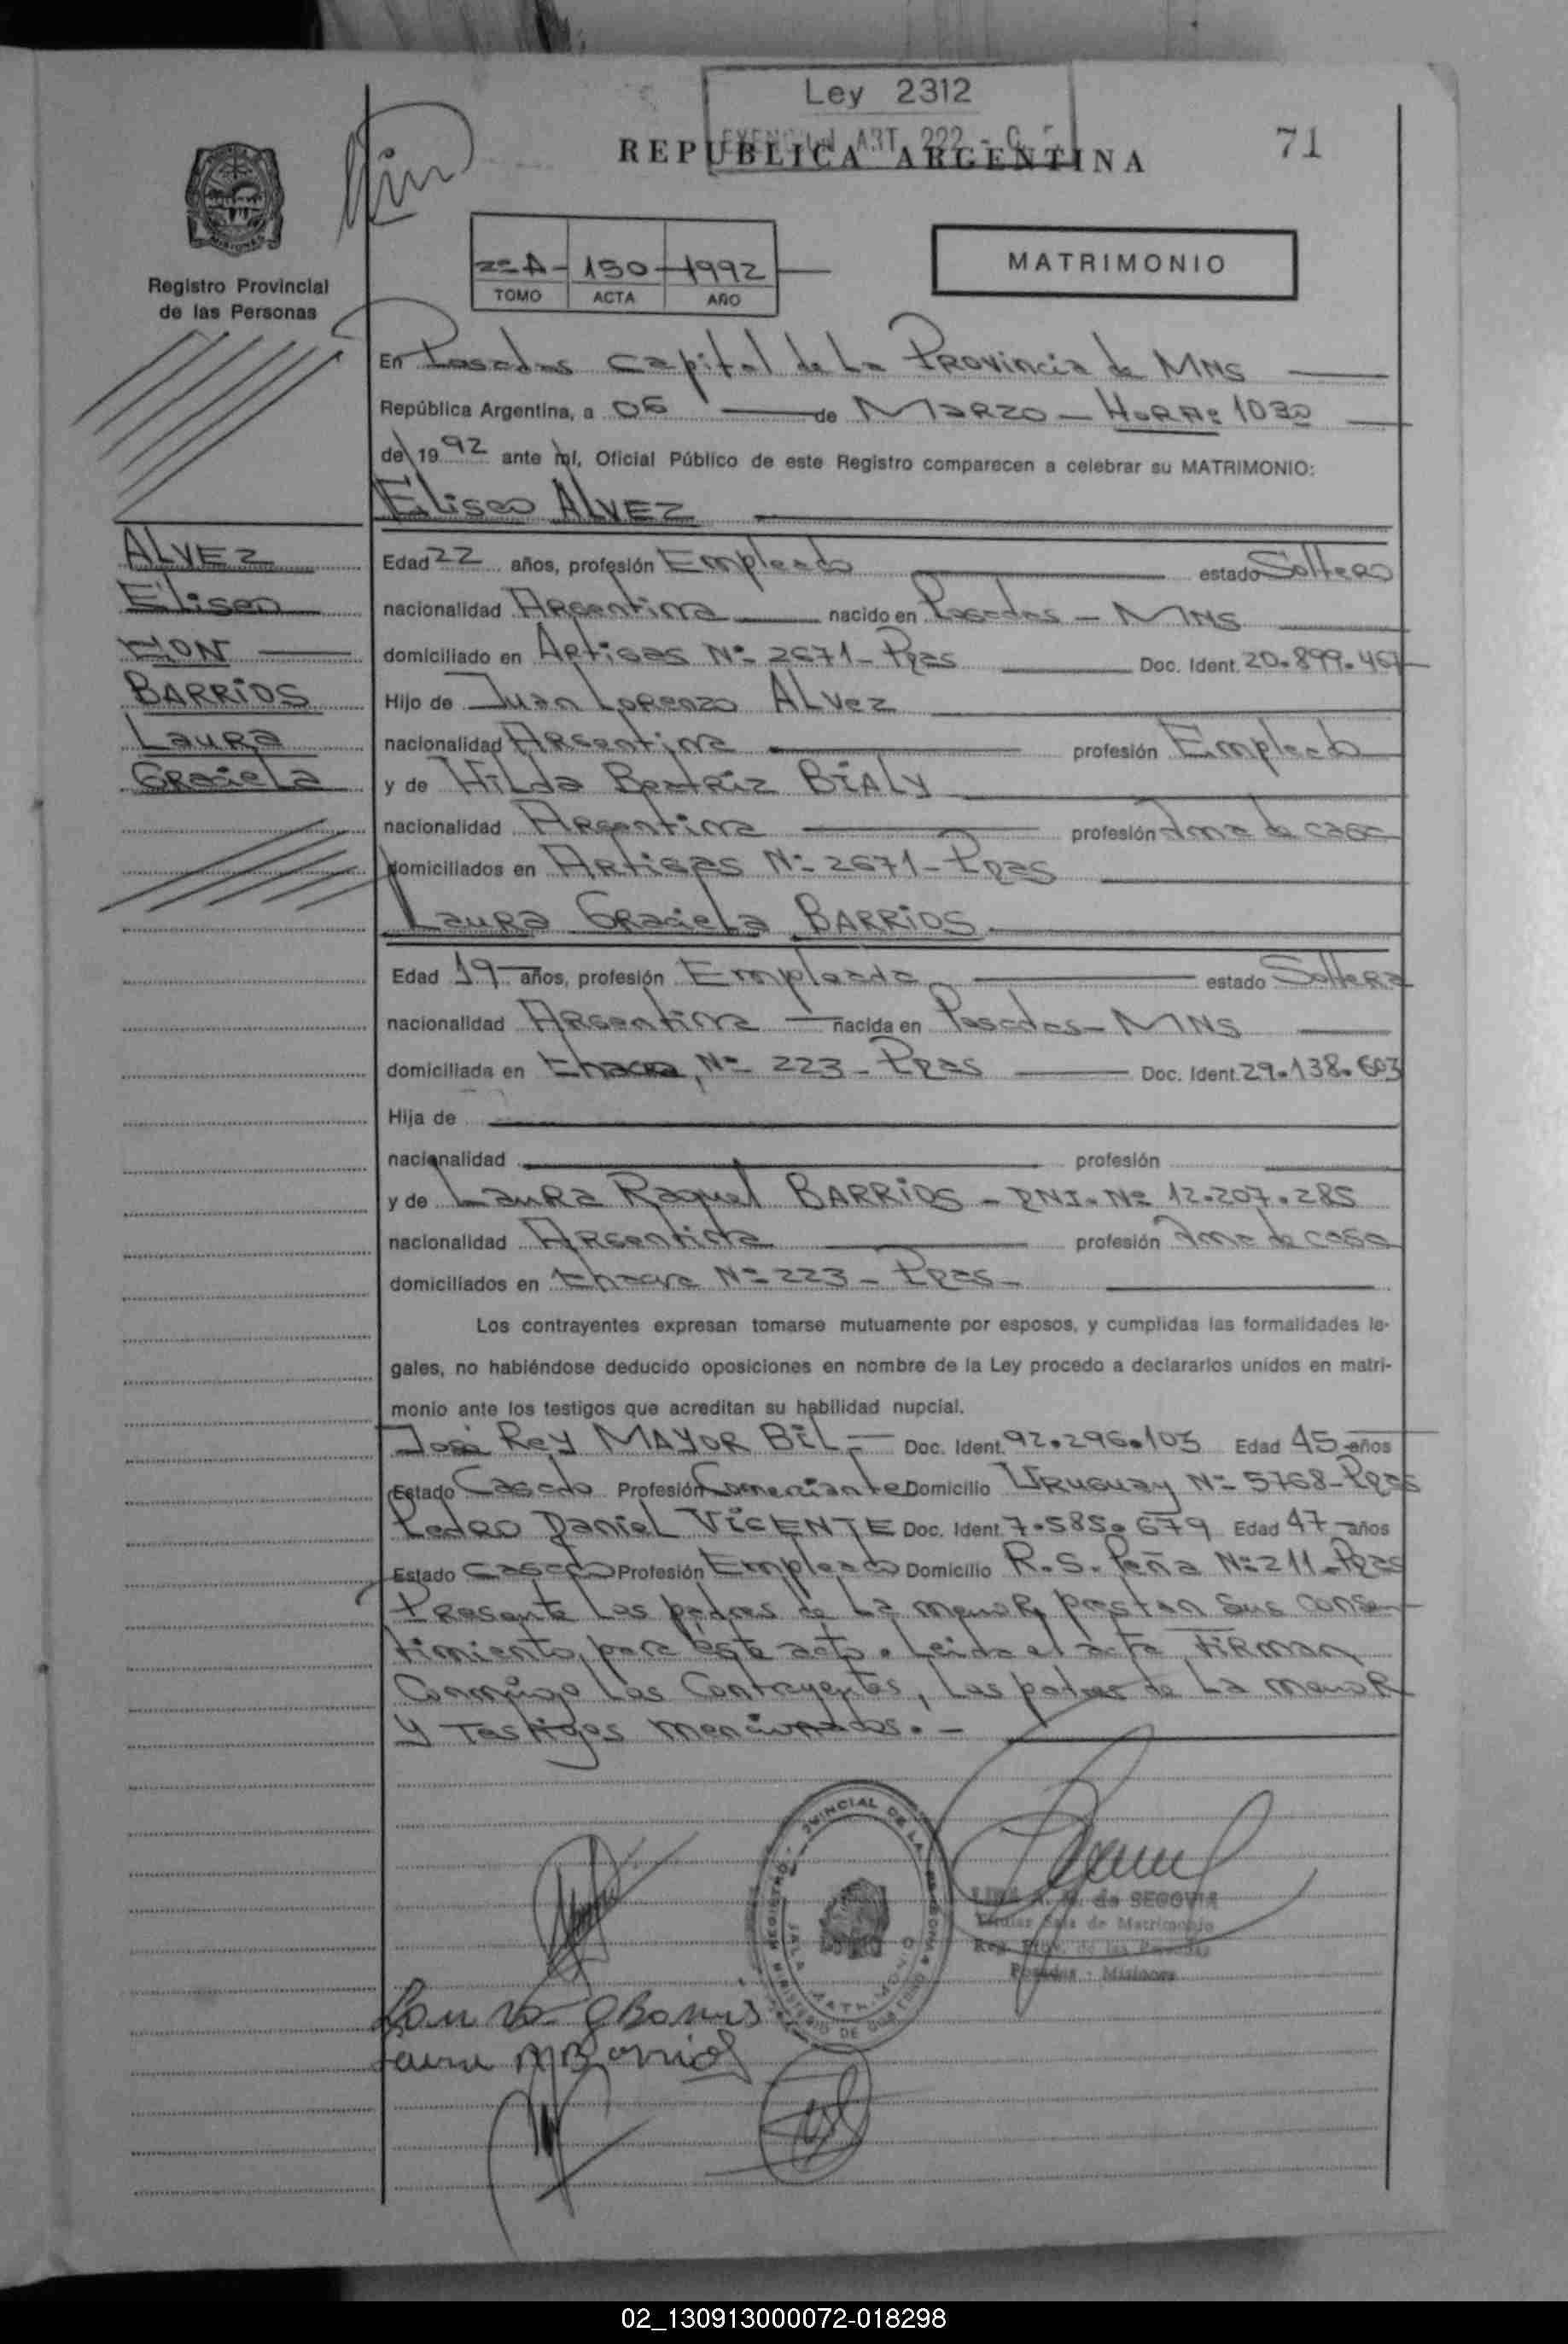 Ley 2312
EXENCION ART 222 - C. F.
REPUBLICA ARGENTINA
71
MISIONES
Registro Provincial
de las Personas
2=A - 150 - 1992
TOMO ACTA AÑO
MATRIMONIO
En Posadas Capital de La Provincia de MNS
República Argentina, a 06 de Marzo - HORA: 1030
de 19 92 ante mí, Oficial Público de este Registro comparecen a celebrar su MATRIMONIO:
Eliseo ALVEZ
ALVEZ
Eliseo
CON
BARRIOS
Laura
Graciela
Edad 22 años, profesión Empleado estado Soltero
nacionalidad Argentina nacido en Posadas - MNS
domiciliado en Artigas Nº 2671 - Pdas Doc. Ident. 20.899.467
Hijo de Juan Lorenzo ALVEZ
nacionalidad Argentina profesión Empleado
y de Hilda Beatriz BIALY
nacionalidad Argentina profesión Ama de casa
domiciliados en Artigas Nº 2671 - Pdas
Laura Graciela BARRIOS
Edad 19 años, profesión Empleada estado Soltera
nacionalidad Argentina nacida en Posadas - MNS
domiciliada en Chacra Nº 223 - Pdas Doc. Ident. 29.138.603
Hija de
nacionalidad profesión
y de Laura Raquel BARRIOS - DNI. Nº 12.207.285
nacionalidad Argentina profesión Ama de casa
domiciliados en Chacra Nº 223 - Pdas -
Los contrayentes expresan tomarse mutuamente por esposos, y cumplidas las formalidades le-
gales, no habiéndose deducido oposiciones en nombre de la Ley procedo a declararlos unidos en matri-
monio ante los testigos que acreditan su habilidad nupcial.
José Rey MAYOR BIL - Doc. Ident. 92.296.103 Edad 45 años
Estado Casado Profesión Comerciante Domicilio Uruguay Nº 5768 - Pdas
Pedro Daniel VICENTE Doc. Ident. 7.585.679 Edad 47 años
Estado Casado Profesión Empleado Domicilio R. S. Peña Nº 211 - Pdas
Presente Los padres de La menor, prestan sus consen-
timiento para éste acto. Leida el acta, FIRMAN
Conmigo Los Contrayentes, Los padres de La menor
y Testigos mencionados. -
de SEGOVIA
Titular Sala de Matrimonio
Reg. Prov. de las Personas
Posadas - Misiones
Laura G Barrios
Laura R Barrios
02_130913000072-018298